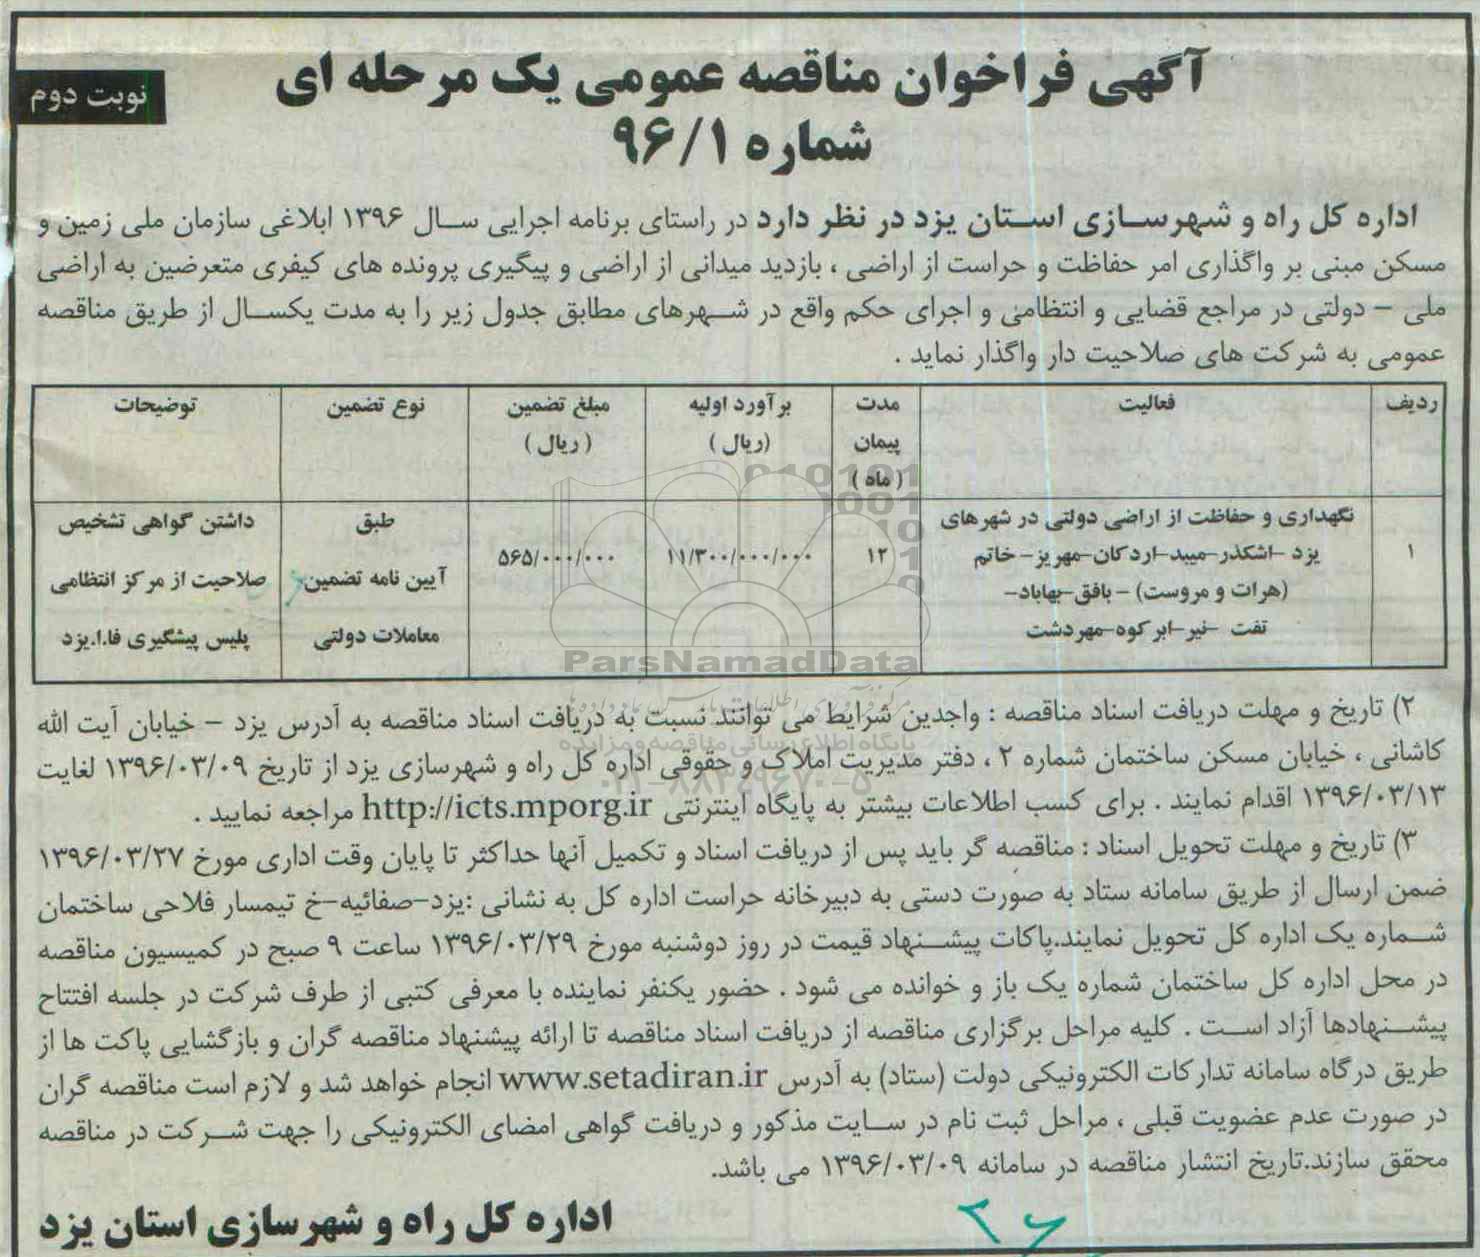 آگهی فراخوان مناقصه عمومی یک مرحله ای
نوبت دوم
شماره ۹۶/۱
اداره کل راه و شهرسازی استان یزد در نظر دارد در راستای برنامه اجرایی سال ۱۳۹۶ ابلاغی سازمان ملی زمین و
مسکن مبنی بر واگذاری امر حفاظت و حراست از اراضی ، بازدید میدانی از اراضی و پیگیری پرونده های کیفری متعرضین به اراضی
ملی – دولتی در مراجع قضایی و انتظامی و اجرای حکم واقع در شهرهای مطابق جدول زیر را به مدت یکسال از طریق مناقصه
عمومی به شرکت های صلاحیت دار واگذار نماید .
ردیف فعالیت مدت پیمان (ماه) برآورد اولیه (ریال) مبلغ تضمین (ریال) نوع تضمین توضیحات
۱ نگهداری و حفاظت از اراضی دولتی در شهرهای
یزد -اشکذر-میبد-اردکان-مهریز-خاتم
(هرات و مروست) -بافق-بهاباد-
تفت -نیر-ابرکوه-مهردشت
۱۲
۱۱/۳۰۰/۰۰۰/۰۰۰
۵۶۵/۰۰۰/۰۰۰
طبق
آیین نامه تضمین
معاملات دولتی
داشتن گواهی تشخیص
صلاحیت از مرکز انتظامی
پلیس پیشگیری فا.ا.یزد
ParsNamadData
پایگاه اطلاع رسانی مناقصه و مزایده
۰۲۱-۸۸۳۴۹۶۷۰-۵
۲) تاریخ و مهلت دریافت اسناد مناقصه : واجدین شرایط می توانند نسبت به دریافت اسناد مناقصه به آدرس یزد – خیابان آیت الله
کاشانی ، خیابان مسکن ساختمان شماره ۲ ، دفتر مدیریت املاک و حقوقی اداره کل راه و شهرسازی یزد از تاریخ ۱۳۹۶/۰۳/۰۹ لغایت
۱۳۹۶/۰۳/۱۳ اقدام نمایند . برای کسب اطلاعات بیشتر به پایگاه اینترنتی http://icts.mporg.ir مراجعه نمایید .
۳) تاریخ و مهلت تحویل اسناد : مناقصه گر باید پس از دریافت اسناد و تکمیل آنها حداکثر تا پایان وقت اداری مورخ ۱۳۹۶/۰۳/۲۷
ضمن ارسال از طریق سامانه ستاد به صورت دستی به دبیرخانه حراست اداره کل به نشانی :یزد-صفائیه-خ تیمسار فلاحی ساختمان
شماره یک اداره کل تحویل نمایند.پاکات پیشنهاد قیمت در روز دوشنبه مورخ ۱۳۹۶/۰۳/۲۹ ساعت ۹ صبح در کمیسیون مناقصه
در محل اداره کل ساختمان شماره یک باز و خوانده می شود . حضور یکنفر نماینده با معرفی کتبی از طرف شرکت در جلسه افتتاح
پیشنهادها آزاد است . کلیه مراحل برگزاری مناقصه از دریافت اسناد مناقصه تا ارائه پیشنهاد مناقصه گران و بازگشایی پاکت ها از
طریق درگاه سامانه تدارکات الکترونیکی دولت (ستاد) به آدرس www.setadiran.ir انجام خواهد شد و لازم است مناقصه گران
در صورت عدم عضویت قبلی ، مراحل ثبت نام در سایت مذکور و دریافت گواهی امضای الکترونیکی را جهت شرکت در مناقصه
محقق سازند.تاریخ انتشار مناقصه در سامانه ۱۳۹۶/۰۳/۰۹ می باشد.
اداره کل راه و شهرسازی استان یزد